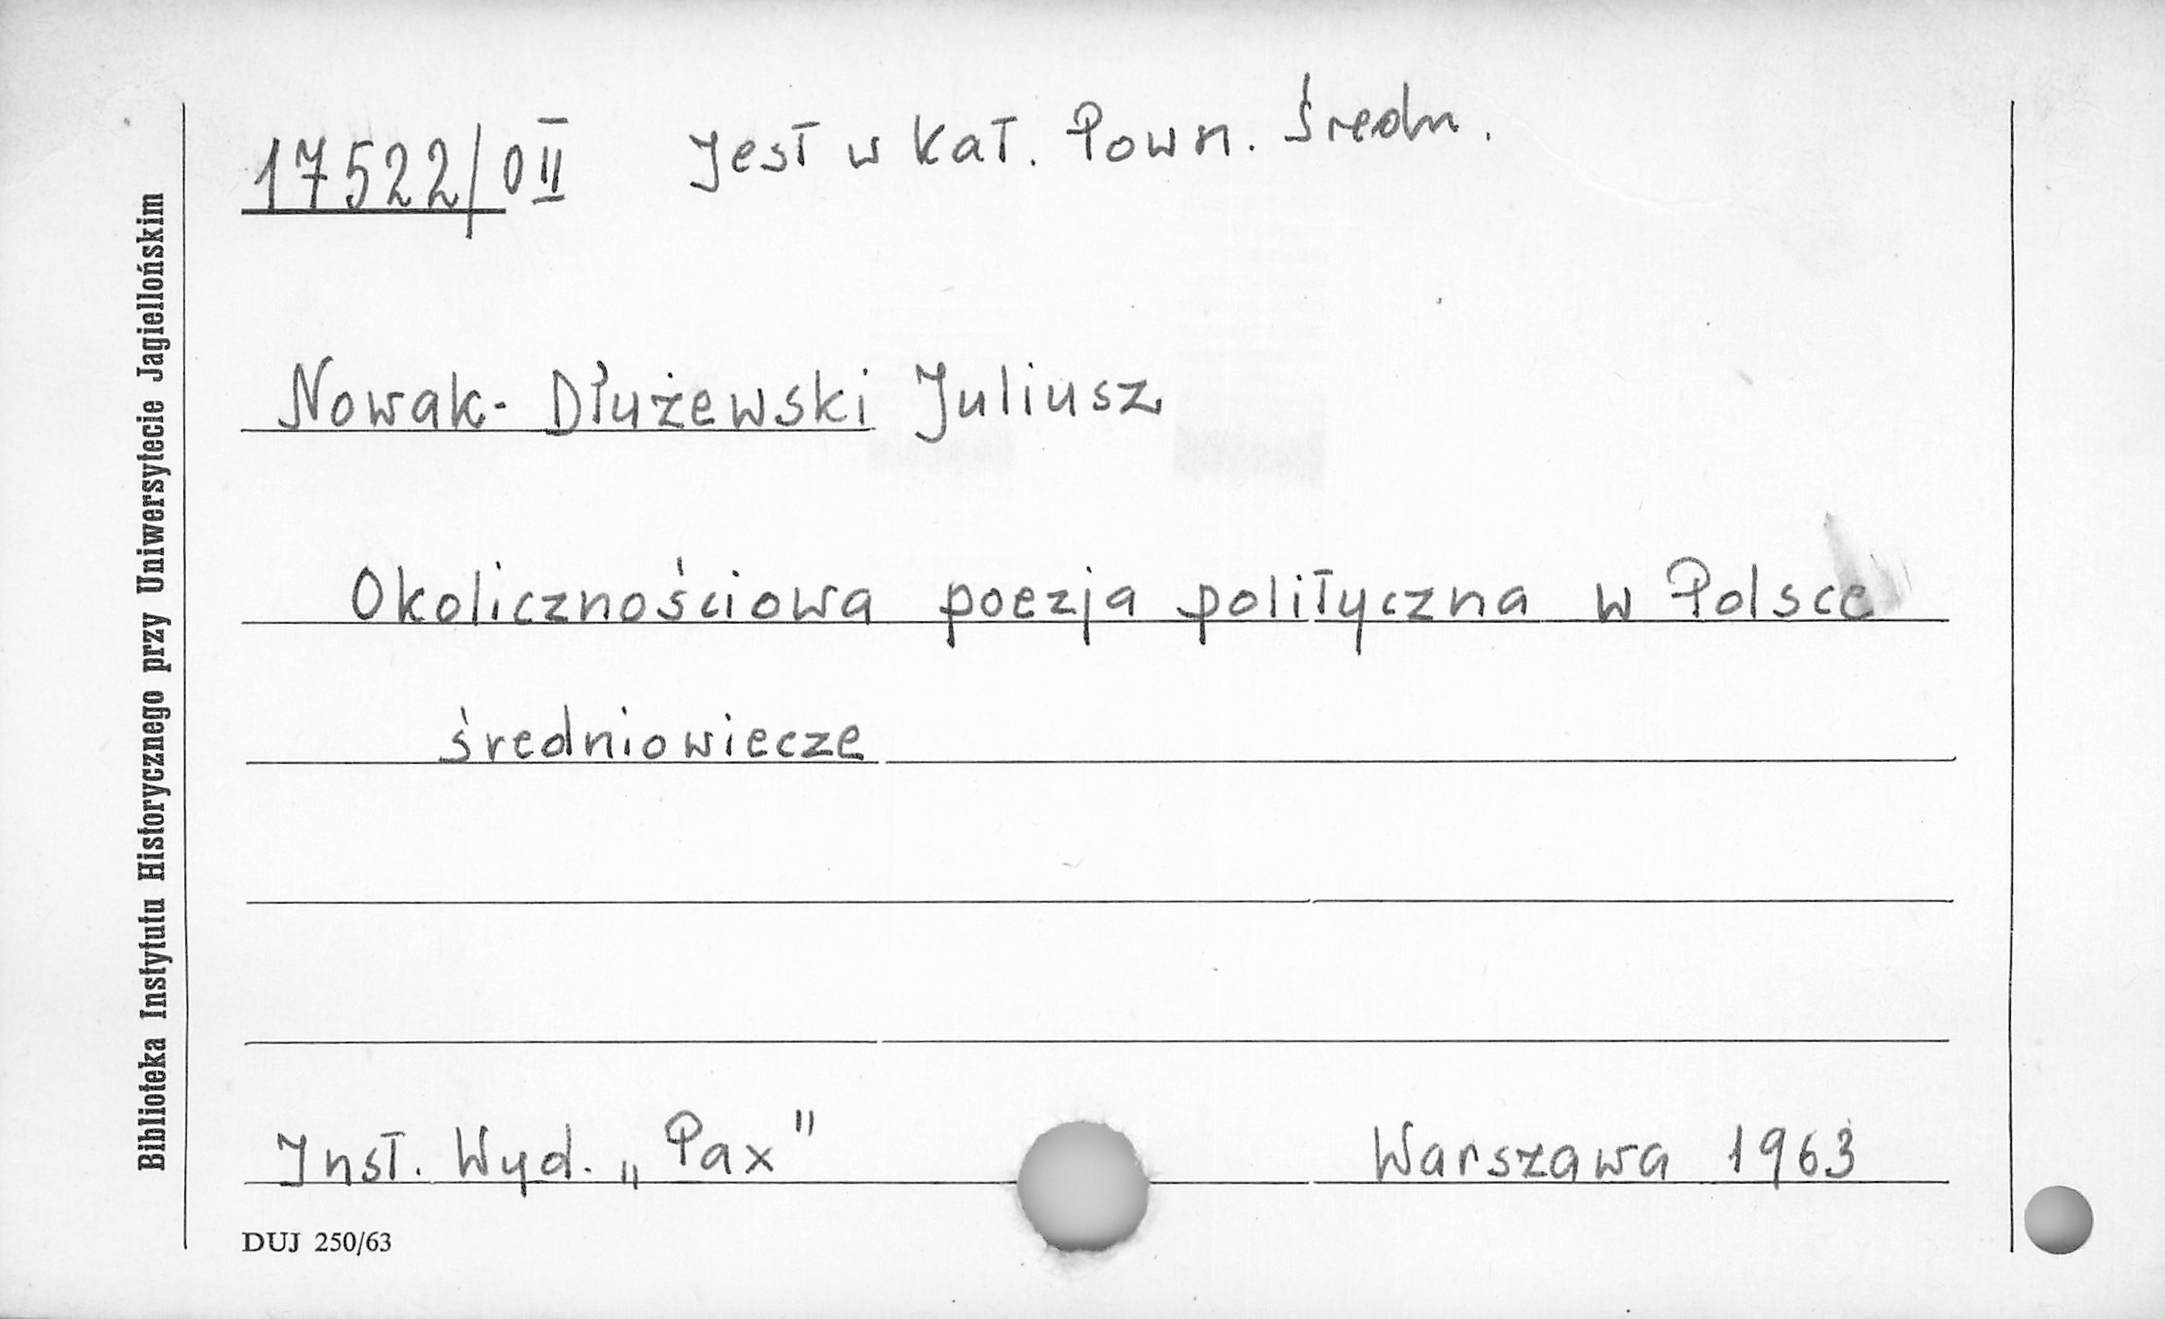 17522/0 II Jest w kat. Pown. Średn.
Nowak-Dłużewski Juliusz
Okolicznościowa poezja polityczna w Polsce
średniowiecze
Inst. Wyd. „Pax" Warszawa 1963
DUJ 250/63
Biblioteka Instytutu Historycznego przy Uniwersytecie Jagiellońskim